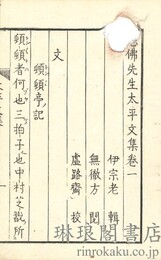 佛先生太平文集卷一
伊宗老 輯
無徹方 閲
虚蹐齋 校
文
頌頌亭記
頌頌者何也三拍子也中村芝翫所
琳琅閣書店
rinrokaku.co.jp